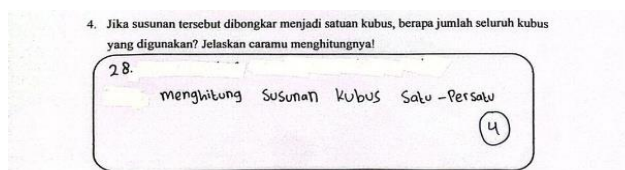 4. Jika susunan tersebut dibongkar menjadi satuan kubus, berapa jumlah seluruh kubus
yang digunakan? Jelaskan caramu menghitungnya!
28.
menghitung susunan kubus satu-Persatu
4